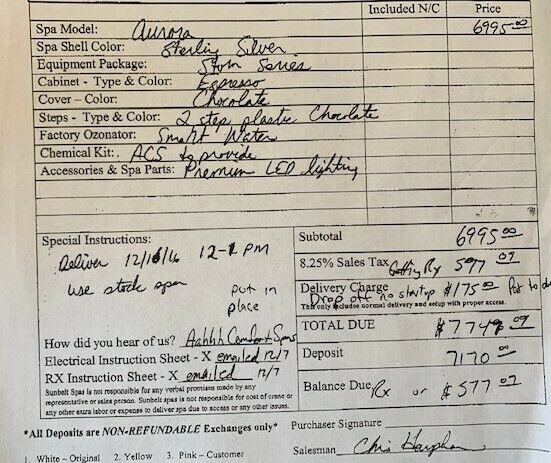 Included N/C Price
Spa Model: Aurora 6995 00
Spa Shell Color: Sterling Silver
Equipment Package: Storm Series
Cabinet - Type & Color: Espresso
Cover – Color: Chocolate
Steps - Type & Color: 2 step plastic Chocolate
Factory Ozonator: Smart Water
Chemical Kit: ACS to provide
Accessories & Spa Parts: Premium LED lighting
Special Instructions:
Deliver 12/16/16 12-1 PM
use stock spa
put in
place
How did you hear of us? Aahhh Comfort Spas
Electrical Instruction Sheet - X emailed 12/7
RX Instruction Sheet - X emailed 12/7
Sunbelt Spas is not responsible for any verbal promises made by any
representative or sales person. Sunbelt spas is not responsible for cost of crane or
any other extra labor or expense to deliver spa due to access or any other issues.
Subtotal 6995 00
8.25% Sales Tax Getting Rx 577 09
Delivery Charge $175 00 Put to d
Drop off no startup
This only includes normal delivery and setup with proper access.
TOTAL DUE $7747 09
Deposit 7170 00
Balance Due Rx or $577 09
*All Deposits are NON-REFUNDABLE Exchanges only*
Purchaser Signature
Salesman Chris
1. White - Original 2. Yellow 3. Pink – Customer